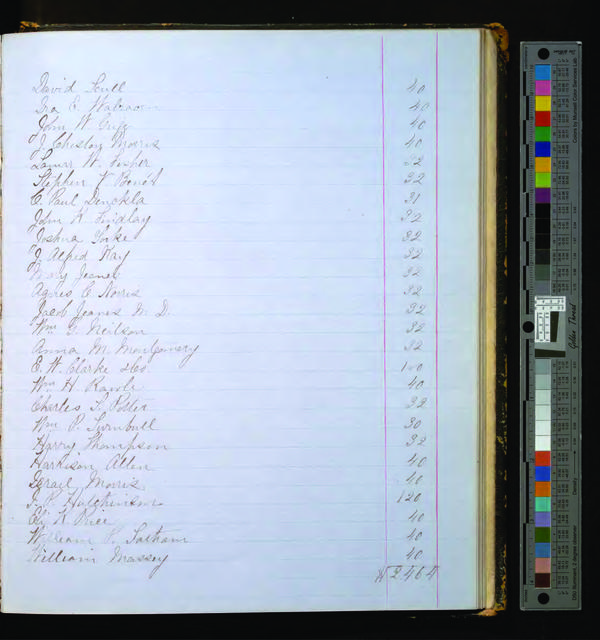 David Scull 40
Ira C. 40
John W. Grigg 40
J Chiston Morris 40
W. Fisher 32
Stephen V Benét 32
C Paul Denckla 31
John R Findlay 32
Joshua Yorke 32
J Alfred Kay 32
Mary Jeanes 32
Agnes C Norris 32
Jacob Jeanes M. D. 32
Wm G. Neilson 32
Anna M. Montgomery 32
E. W. Clarke &Co 100
Wm H Rawle 40
Charles S. Potter 32
Wm P. Turnbull 30
Harry Thompson 32
Harrison Allen 40
Israel Morris 40
I. P. Hutchinson 120
Eli K Price 40
William P. Tatham 40
William Massey 40
2464